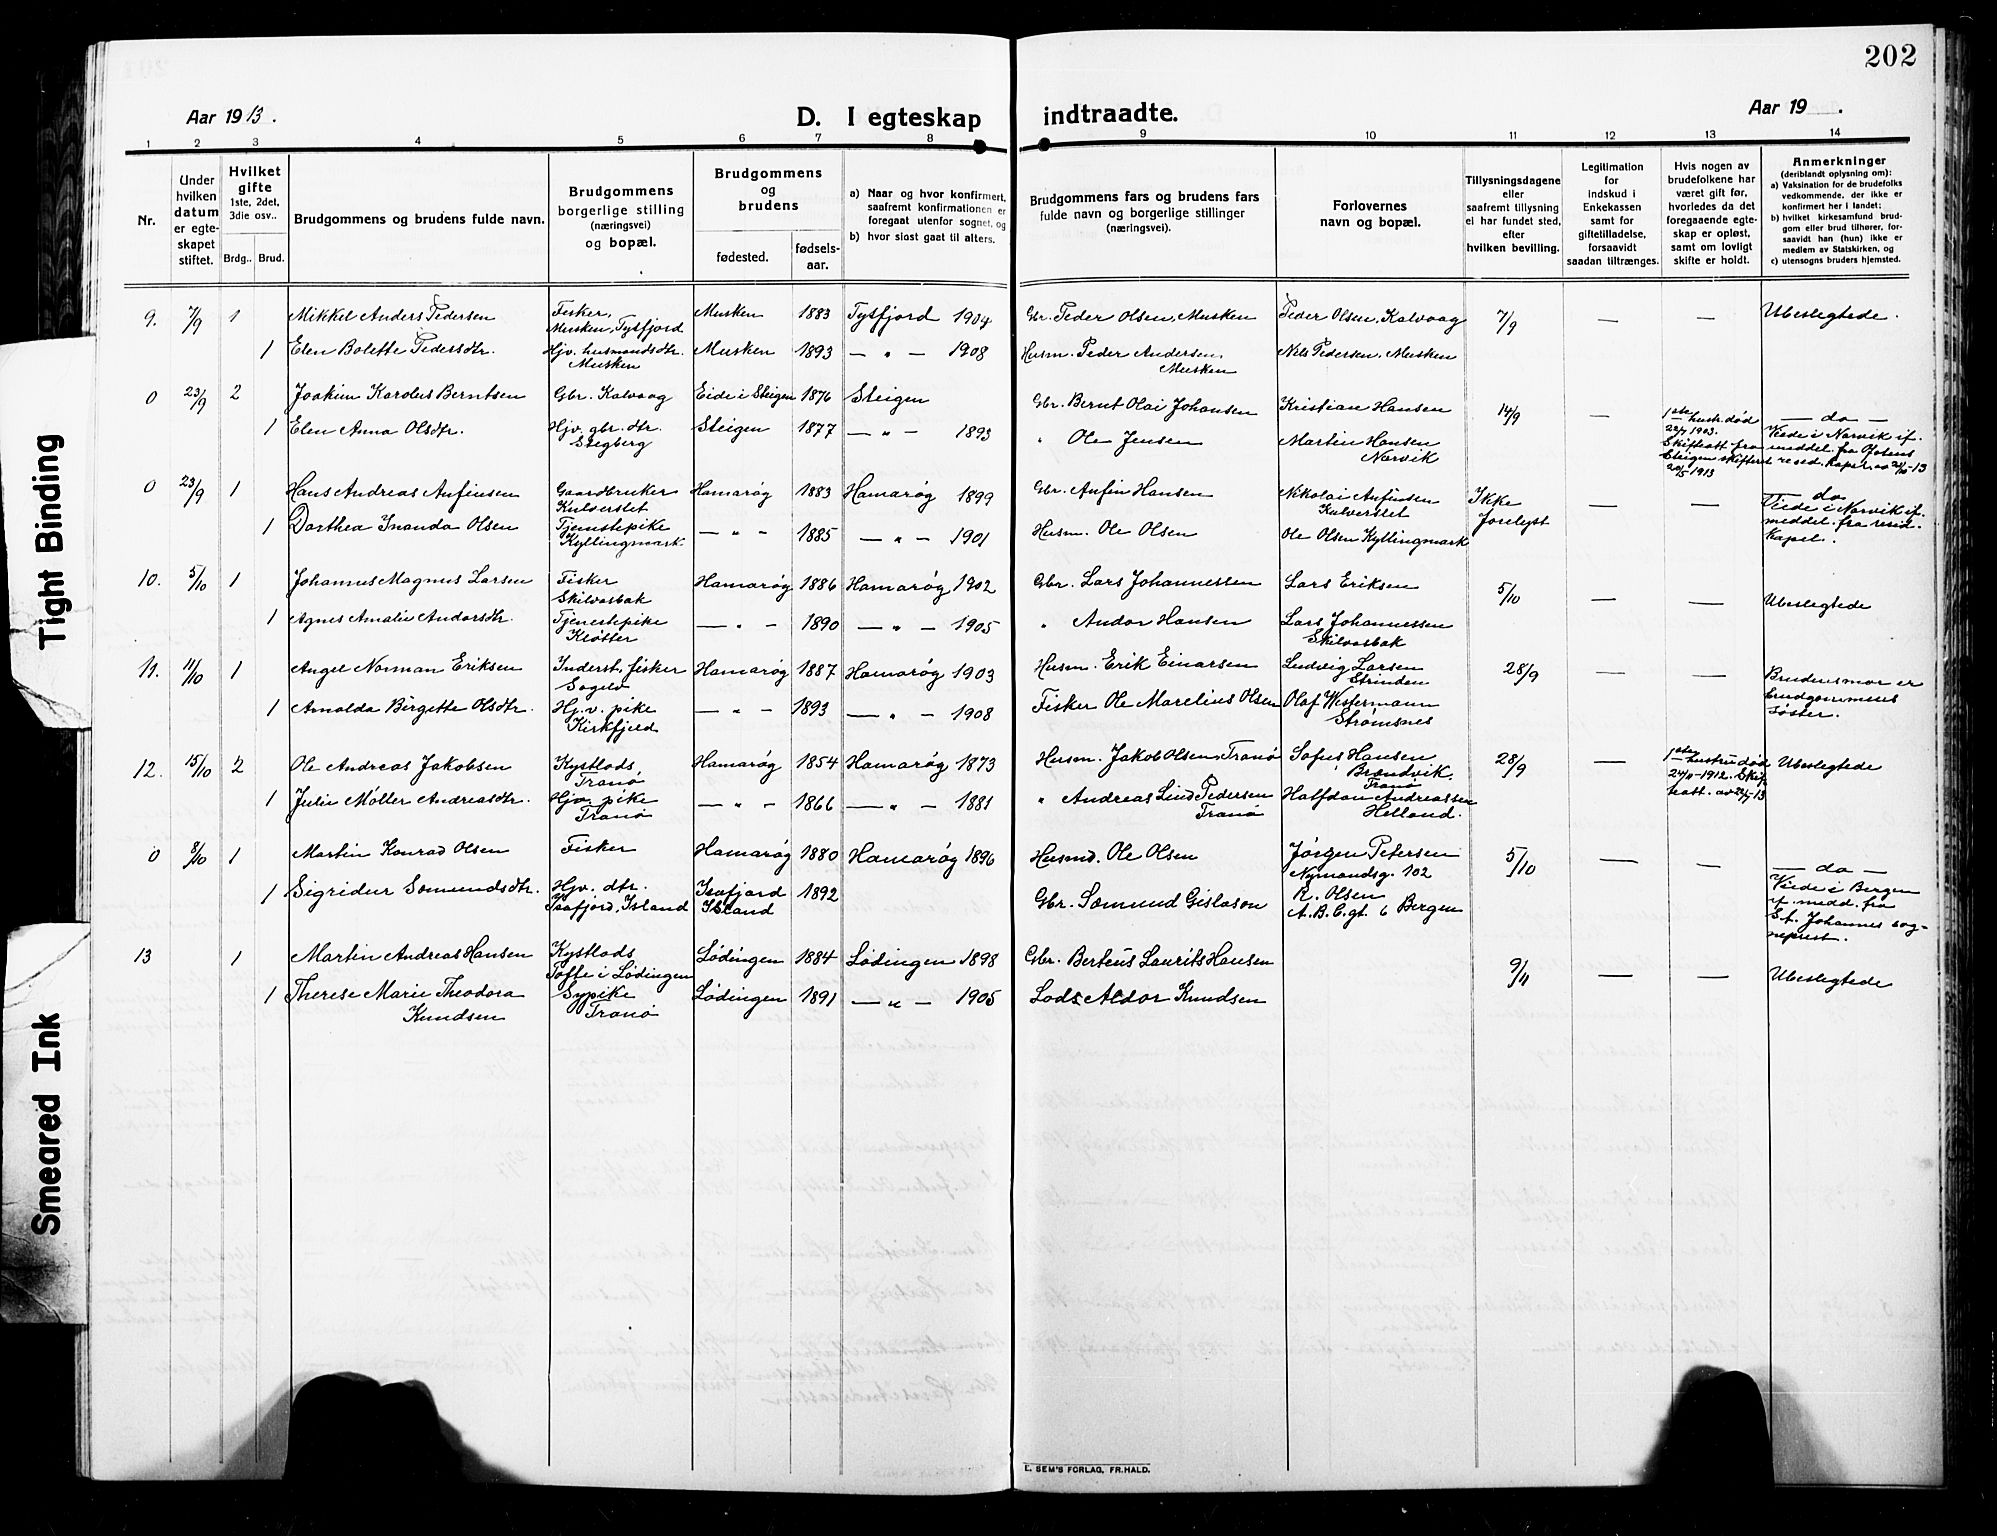 202
Aar 1913.
D. I egteskap
indtraadte.
Aar 19 .
1 2 3 4 5 6 7 8 9 10 11 12 13 14
Nr.
Under hvilken datum er egte-skapet stiftet.
Hvilket gifte 1ste, 2det, 3die osv..
Brdg.. Brud.
Brudgommens og brudens fulde navn.
Brudgommens borgerlige stilling (næringsvei) og bopæl.
Brudgommens og brudens
fødested.
fødsels-aar.
a) Naar og hvor konfirmert, saafremt konfirmationen er foregaat utenfor sognet, og
b) hvor sidst gaat til alters.
Brudgommens fars og brudens fars fulde navn og borgerlige stillinger (næringsvei).
Forlovernes navn og bopæl.
Tillysningsdagene eller saafremt tillysning ei har fundet sted, efter hvilken bevilling.
Legitimation for Indskud i Enkekassen samt for giftetilladelse, forsaavidt saadan tiltrænges.
Hvis nogen av brudefolkene har været gift før, hvorledes da det foregaaende egte-skap er opløst, samt om lovligt skifte er holdt.
Anmerkninger (deriblandt oplysning om):
a) Vaksination for de brudefolks vedkommende, der ikke er konfirmert her i landet;
b) hvilket kirkesamfund brud-gom eller brud tilhører, for-saavidt han (hun) ikke er medlem av Statskirken, og
c) utensogns bruders hjemsted.
9. 7/9 1 Mikkel Anders Pedersen Fisker, Musken, Tysfjord Musken 1883 Tysfjord 1904 Gbr. Peder Olsen, Musken Peder Olsen, Kalvaag 7/9 — — Ubeslegtede.
1 Elen Bolette Pedersdtr. Hjv. husmandsdtr. Musken Musken 1893 — " — 1908 Husm. Peder Andersen, Musken Nils Pedersen, Musken
0 23/9 2 Joakim Karolus Berntsen Gbr. Kalvaag Eide i Steigen 1876 Steigen Gbr. Bernt Olai Johansen Kristian Hansen 14/9 — 1ste hustr. død 22/7 1903. Skifteatt fra Steigen skifteret 20/5 1913 — do — Viede i Narvik if. meddel. fra Ofotens resid. kapel. av 21/10-13
1 Elen Anna Olsdtr. Hjv. gbr. dtr. Stegberg Steigen 1877 — " — 1893 " Ole Jensen Martin Hansen Narvik
0 23/9 1 Hans Andreas Anfinsen Gaardbruker Kulverstet Hamarøg 1883 Hamarøg 1899 Gbr. Anfin Hansen Nikolai Anfinsen Kulverstet Ikke forelyst — — — do Viede i Narvik if. meddel. fra resid. kapel.
1 Dorthea Inanda Olsen Tjenstepike Kyllingmark — " — 1885 — " — 1901 Husm. Ole Olsen Ole Olsen Kyllingmark
10. 5/10 1 Johannes Magnus Larsen Fisker Skilvasbak Hamarøg 1886 Hamarøg 1902 Gbr. Lars Johannessen Lars Eriksen 5/10 — — Ubeslegtede
1 Agnes Amalie Andorsdtr. Tjenestepike Kløtter — " — 1890 — " — 1905 " Andor Hansen Lars Johannessen Skilvasbak
11. 11/10 1 Angel Norman Eriksen Inderst, fisker Sagelv Hamarøg 1887 Hamarøg 1903 Husm. Erik Einarsen Ludvig Larsen Strinden 28/9 — — Brudens mor er brudgommens søster.
1 Arnolda Birgitte Olsdtr. Hj. v. pike Kirkfjeld — " — 1893 — " — 1908 Fisker Ole Marelius Olsen Olaf Westermann Strømsnes
12. 15/10 2 Ole Andreas Jakobsen Kystlods Tranø Hamarøg 1854 Hamarøg 1873 Husm. Jakob Olsen, Tranø Sofus Hansen Brandvik, Tranø 28/9 — 1ste hustru død 24/11-1912. Skif teatt. av 22/7-13 Ubeslegtede
1 Julie Møller Andreasdtr. Hjv. pike Tranø — " — 1866 — " — 1881 " Andreas Lind Pedersen Tranø Halfdan Andreassen Helland.
0 8/10 1 Martin Konrad Olsen Fisker Hamarøg 1880 Hamarøg 1896 Husmd. Ole Olsen Jørgen Petersen Nymandsg. 102 5/10 — — — do — Viede i Bergen if. medd. fra St. Johannes sog-neprest.
1 Sigridur Sæmundsdtr. Hjv. dtr. Isafjord, Island Isafjord Island 1892 Gbr. Sæmund Gislason R. Olsen A.B.C.gt. 6 Bergen
13 1 Martin Andreas Hansen Kystlods Tofte i Lødingen Lødingen 1884 Lødingen 1898 Gbr. Berteus Laurits Hansen 9/11 — — Ubeslegtede
1 Therese Marie Theodora Knudsen Sypike Tranø Lødingen 1891 — " — 1905 Lods Aldor Knudsen
E. SEM'S FORLAG, FR.HALD.
Tight Binding
Smeared Ink